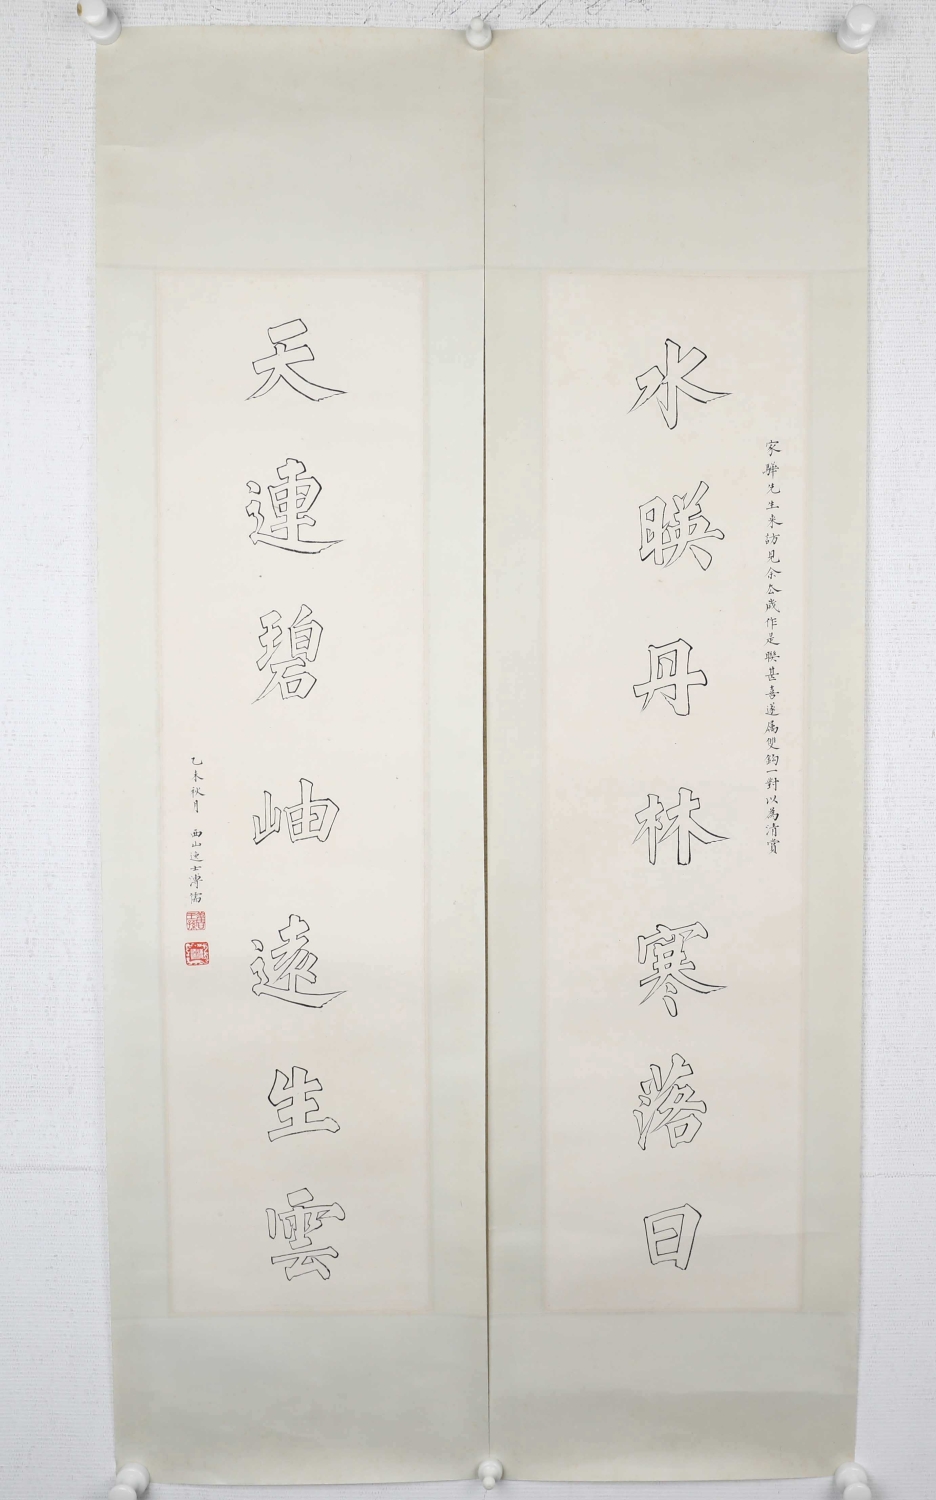 家驊先生來訪見余去歲作是聯甚喜遂屬雙鉤一對以為清賞
水暎丹林寒落日
天連碧岫遠生雲
乙未秋月 西山逸士溥儒